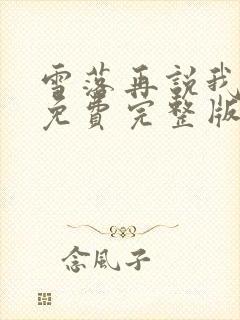 雪落再説我
免費完整版
念風子